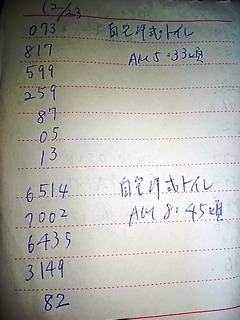 12/23
073 自宅洋式トイレ
817 AM 5:33頃
599
259
87
05
13
6514 自宅洋式トイレ
7002 AM 8:45頃
6435
3149
82